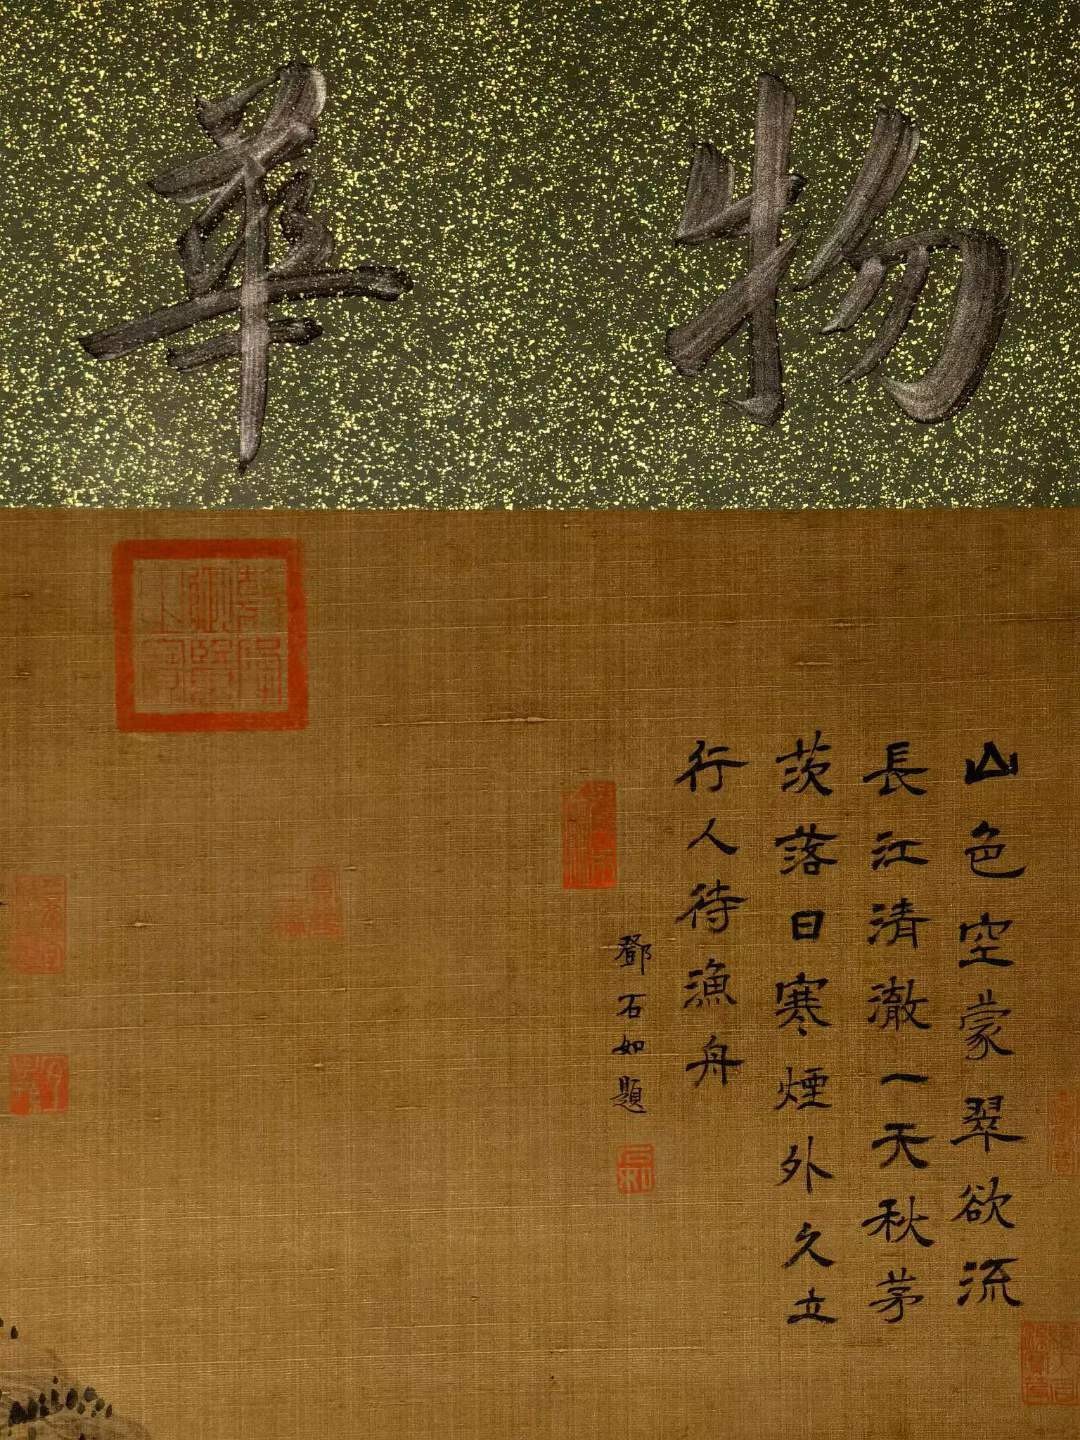 物華
山色空蒙翠欲流
長江清澈一天秋茅
茨落日寒煙外久立
行人待漁舟
鄧石如題